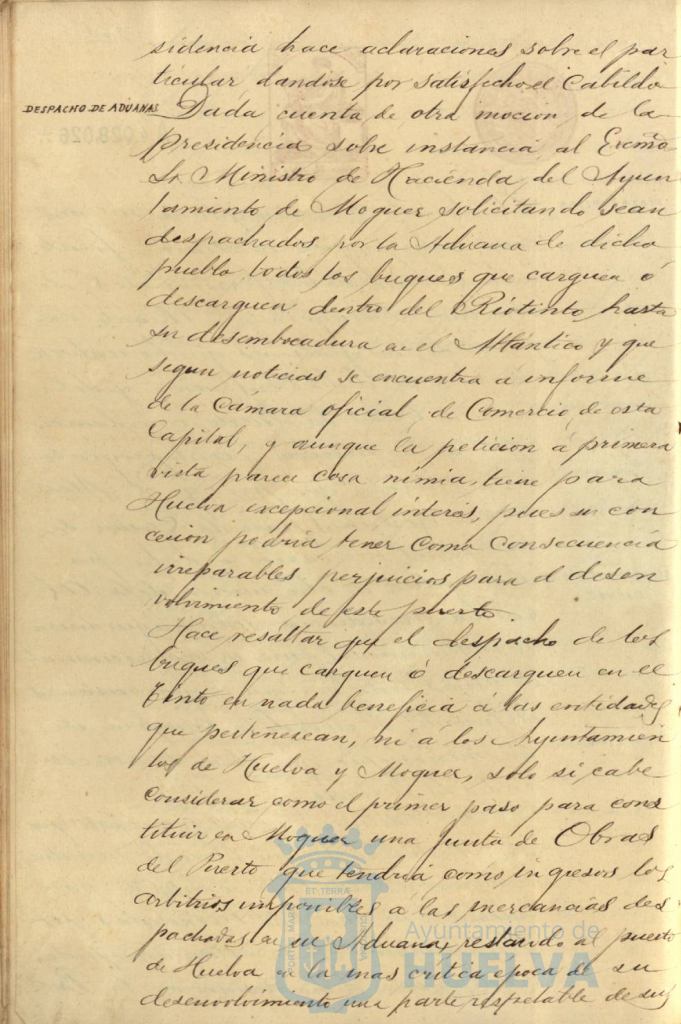 sidencia hace aclaraciones sobre el par
ticular dandose por satisfecho el Cabildo
DESPACHO DE ADUANAS
Dada cuenta de otra mocion de la
presidencia sobre instancia al Excmo
Sr. Ministro de Hacienda del Ayun
tamiento de Moguer solicitando sean
despachados por la Aduana de dicho
pueblo todos los buques que carguen ó
descarguen dentro del Riotinto hasta
su desembocadura en el Atlántico y que
segun noticias se encuentra á informe
de la Cámara oficial de Comercio de esta
Capital, y aunque la peticion á primera
vista parece cosa nimia, tiene para
Huelva excepcional interés, pues su con
cesion podria tener como consecuencia
irreparables perjuicios para el desen
volvimiento de este puerto.
Hace resaltar que el despacho de los
buques que carguen ó descarguen en el
Tinto en nada beneficia á las entidades
que pertenescan, ni á los Ayuntamien
tos de Huelva y Moguer, solo si cabe
considerar como el primer paso para cons
tituir en Moguer una Junta de Obras
del Puerto que tendria como ingresos los
arbitrios imponibles á las mercancias des
pachadas en su Aduana, restando al puerto
de Huelva en la mas critica epoca de su
desenvolvimiento una parte respetable de sus
PORTUS MARIS
ET TERRÆ
Ayuntamiento de
HUELVA